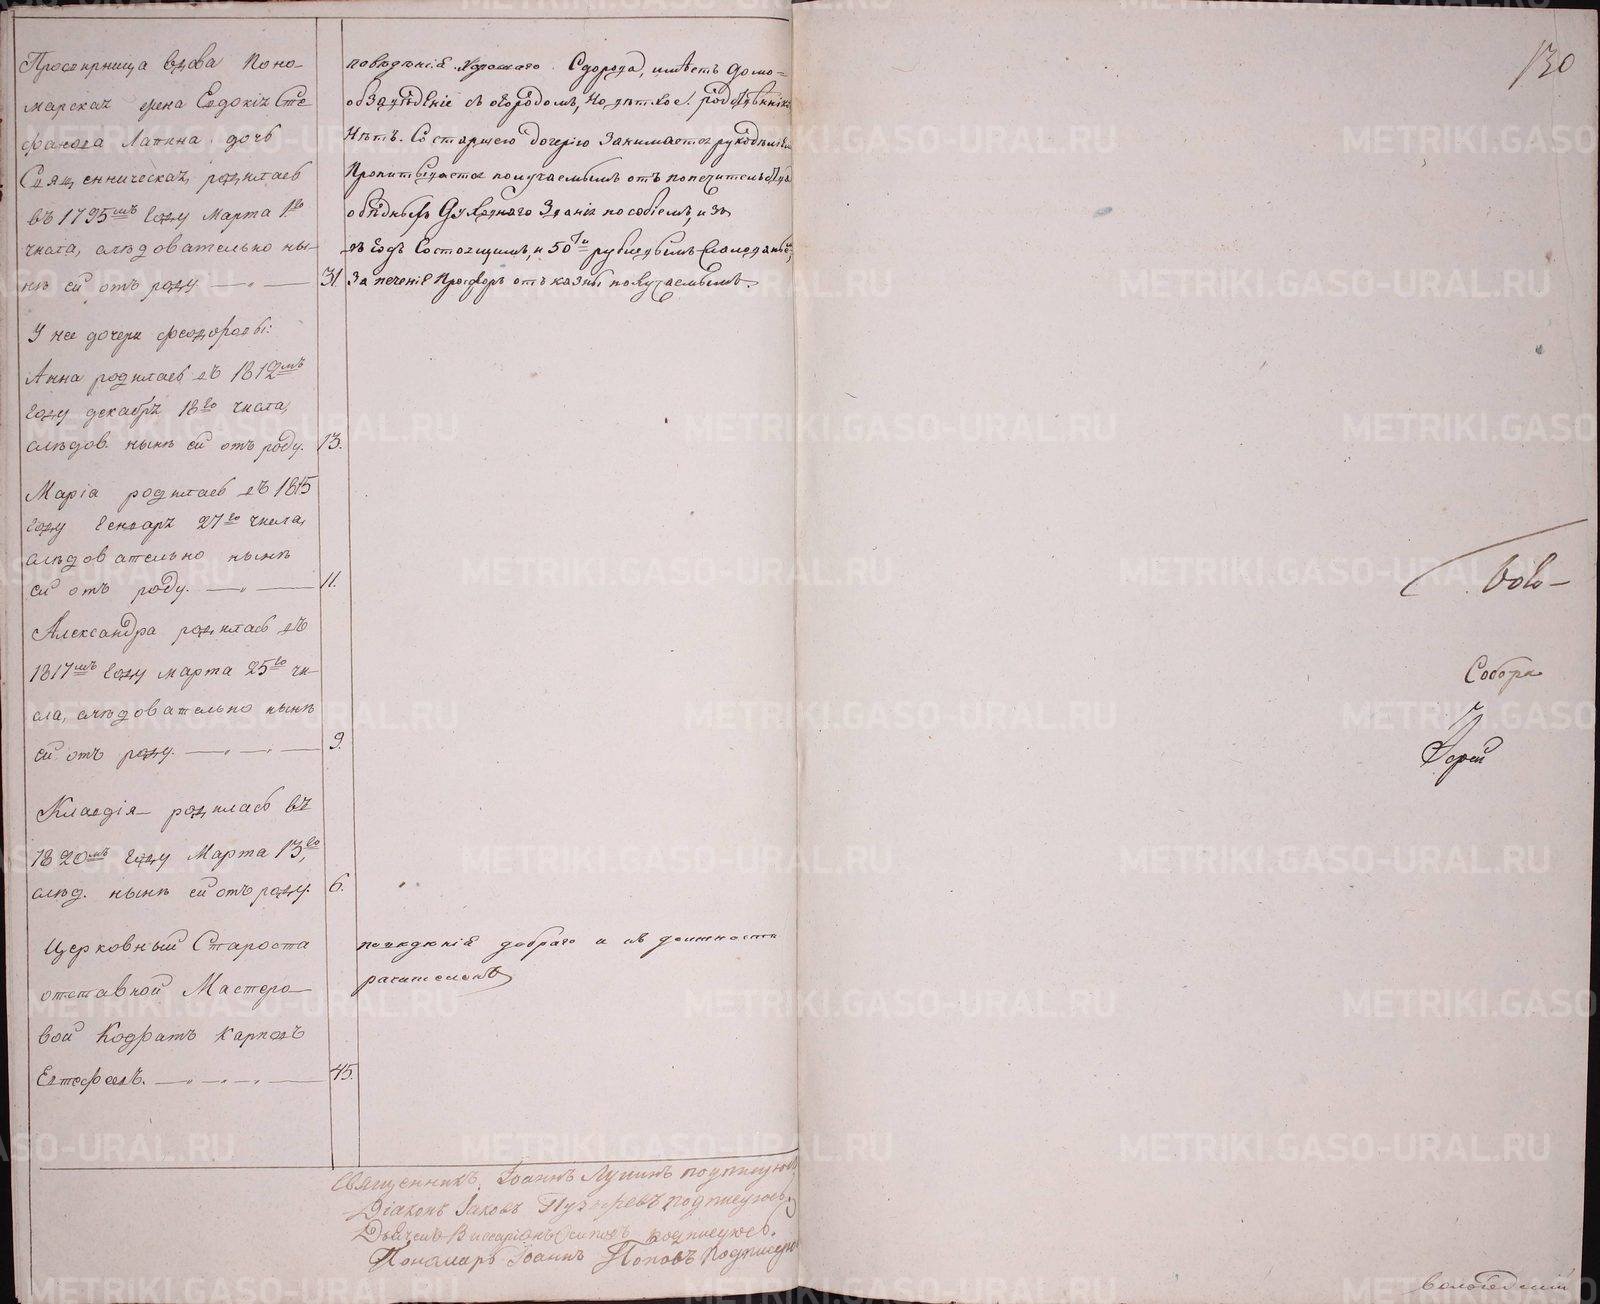 Просвирница вдова Поно-
марская жена Евдокія Сте
фанова Лапина дочь
Священническая, родилась
въ 1795мъ году Марта 1го
числа, слѣдовательно ны-
нѣ ей отъ роду 31.
У нее дочери Феодоровы:
Анна родилась въ 1812мъ
году декабря 18го числа,
слѣдов. нынѣ ей отъ роду. 13.
Марія родилась въ 1815
году Генваря 27го числа,
слѣдовательно нынѣ
ей отъ роду. 11.
Александра родилась въ
1817мъ году марта 25го чи-
сла, слѣдовательно нынѣ
ей отъ роду. 9.
Клавдія родилась въ
1820мъ году Марта 13го,
слѣд. нынѣ ей отъ роду. 6.
Церковный Староста
отставной Мастеро-
вой Кодратъ Карповъ
45.
поведенія хорошаго. имѣетъ домо-
обзаведеніе съ огородомъ,
Нѣтъ. Со старшею дочерію занимается рукодѣліемъ
Пропитывается получаемымъ отъ попечительства
о бѣдныхъ Духовнаго Званія пособіемъ,
въ годъ Состоящимъ, и 50 рублевымъ
За печеніе Просворъ отъ казны получаемымъ.
поведенія добраго и въ должности
рачителенъ
Священникъ Іоаннъ Лукинъ подписуюсь
Діаконъ Іаковъ подписуюсь
Дьячекъ Виссаріонъ Осиповъ подписуюсь.
Пономарь Іоаннъ Поповъ подписую
130
Собора
METRIKI.GASO-URAL.RU